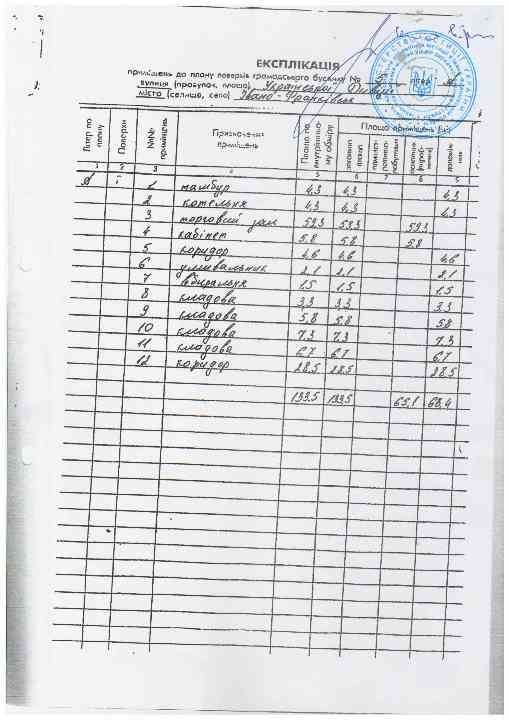 ЕКСПЛІКАЦІЯ
приміщень до плану поверхів громадського будинку №
вулиця (провулок, площа) Української Дивізії
місто (селище, село) Івано-Франківськ
Літер по плану Поверхи №№ приміщень Призначення приміщень Площа по внутрішньому обміру Площа приміщень
1 2 3 4 5 6 7 8 9
А І 1 тамбур 4,3 4,3 4,3
2 котельня 4,3 4,3 4,3
3 торговий зал 59,3 59,3 59,3
4 кабінет 5,8 5,8 5,8
5 коридор 4,6 4,6 4,6
6 умивальник 2,1 2,1 2,1
7 вбиральня 1,5 1,5 1,5
8 кладова 3,3 3,3 3.3
9 кладова 5,8 5,8 5,8
10 кладова 7,3 7,3 7.3
11 кладова 6,7 6,7 6,7
12 коридор 28,5 28,5 28.5
133,5 133,5 65,1 68,4